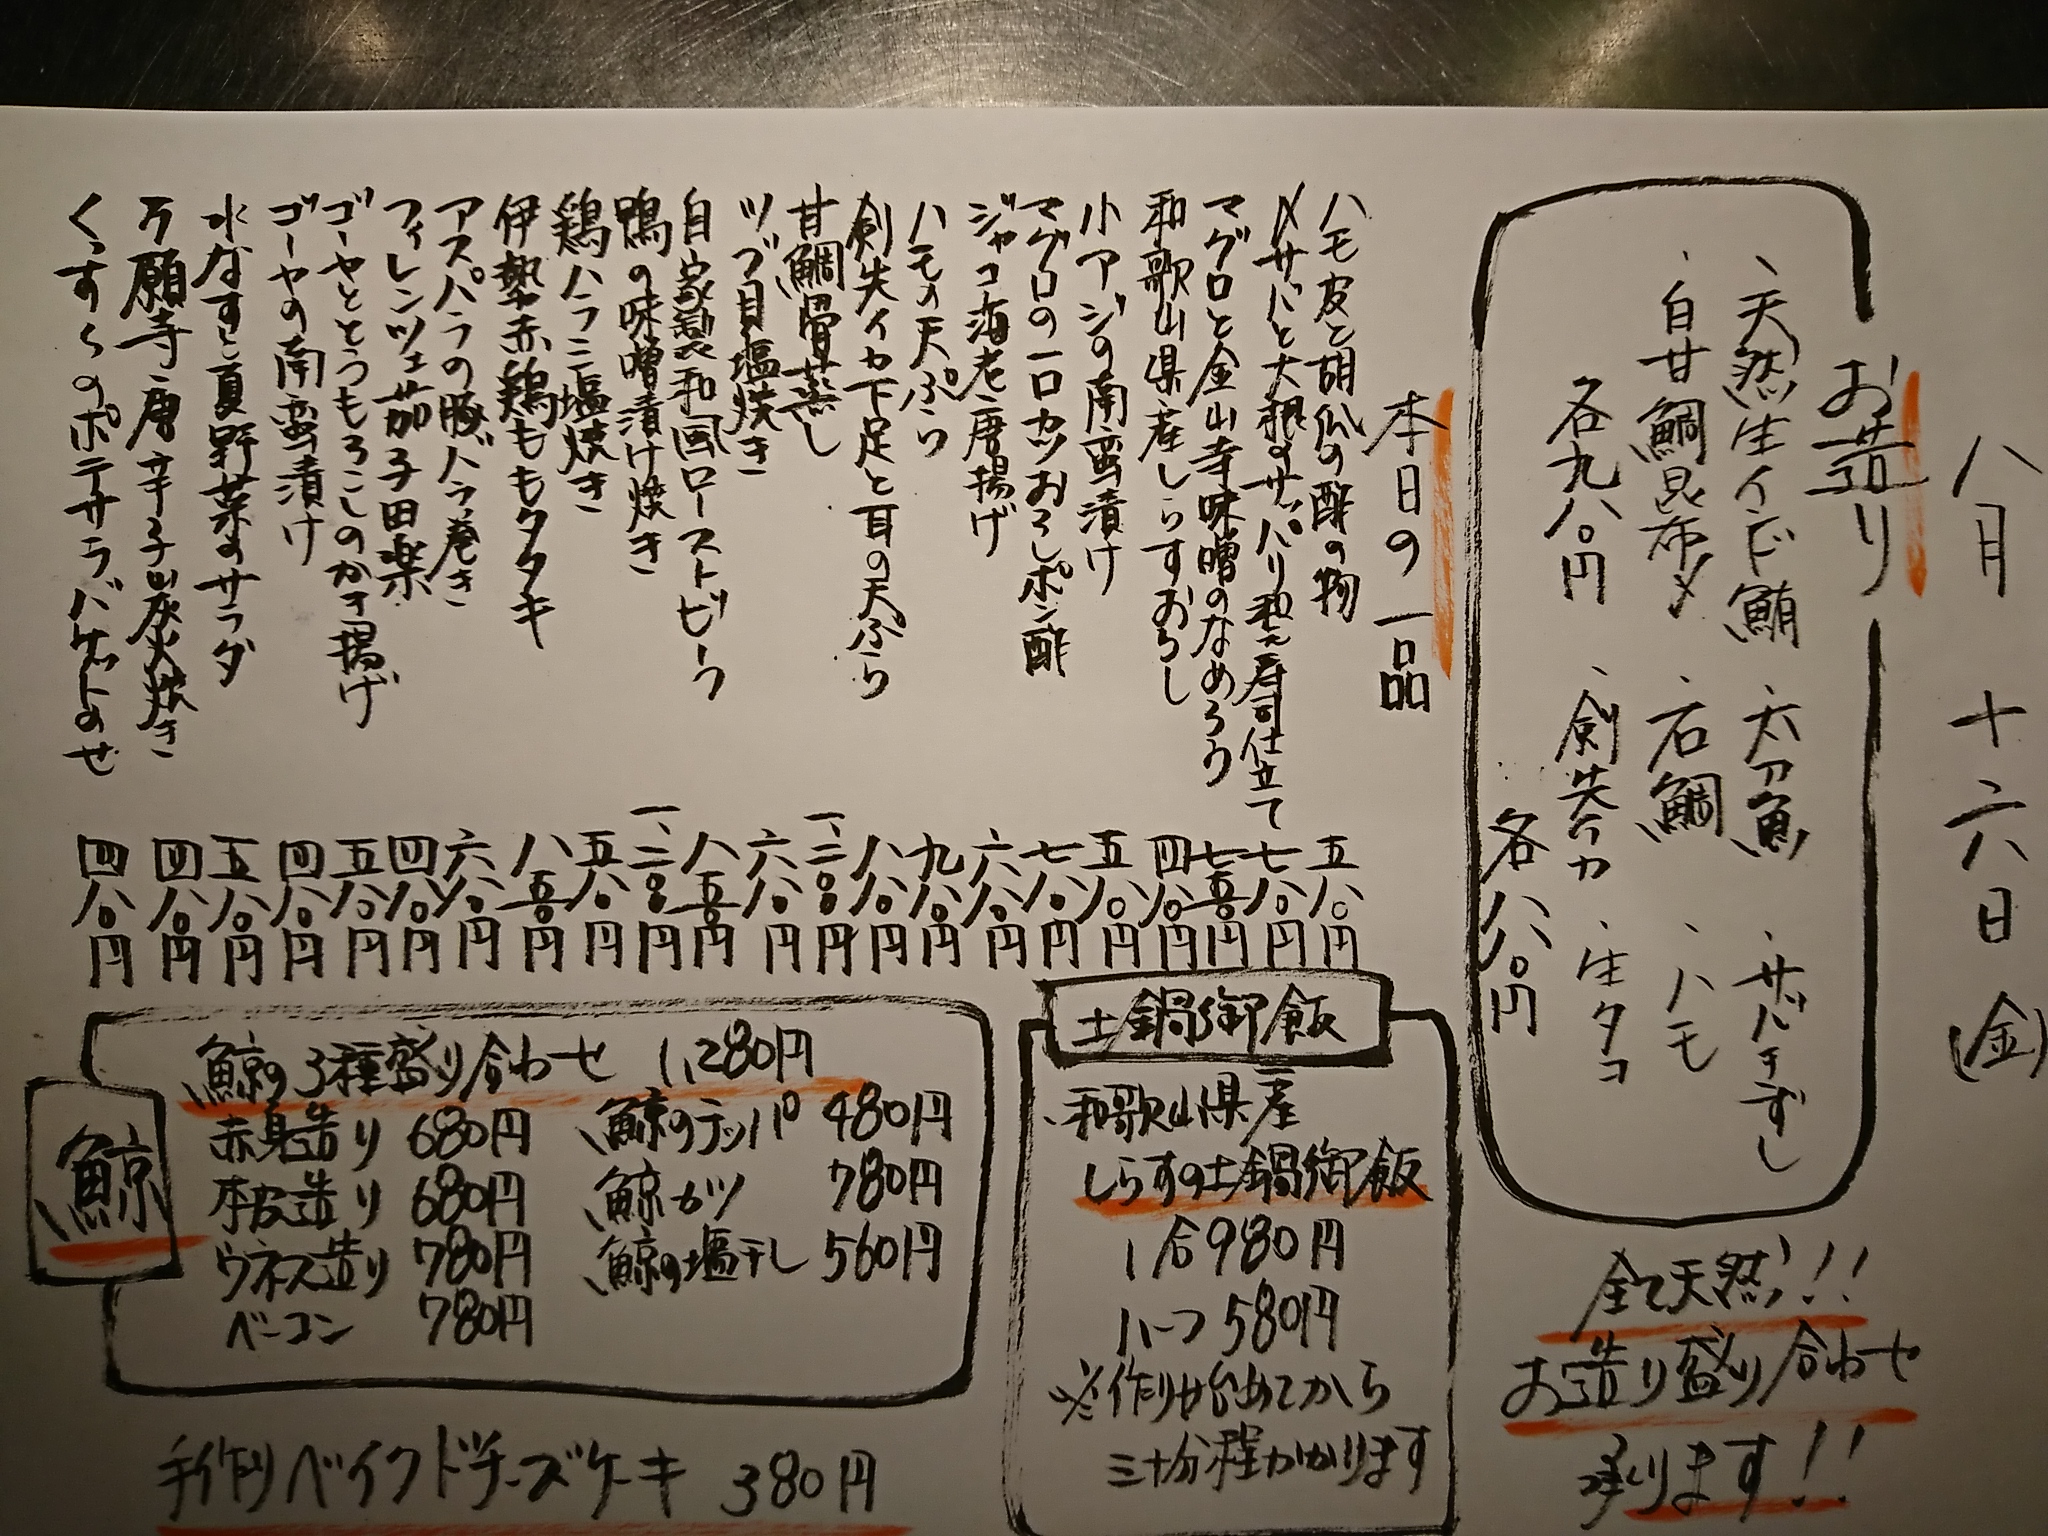 八月十六日(金)
お造り
・天然生インド鮪
・太刀魚
・サバきずし
・白甘鯛昆布〆
・石鯛
・ハモ
各九八〇円
・剣先イカ
・生タコ
各八八〇円
全て天然!!
お造り盛り合わせ
承ります!!
本日の一品
ハモ皮と胡瓜の酢の物 五八〇円
〆サバと大根のサッパリ和え寿司仕立て 七八〇円
マグロと金山寺味噌のなめろう 七五〇円
和歌山県産しらすおろし 四八〇円
小アジの南蛮漬け 五八〇円
マグロの一口カツおろしポン酢 七八〇円
ジャコ海老唐揚げ 六八〇円
ハモの天ぷら 九八〇円
剣先イカ下足と耳の天ぷら 八八〇円
甘鯛骨蒸し 一、二八〇円
ツブ貝塩焼き 六八〇円
自家製和風ローストビーフ 八五〇円
鴨の味噌漬け焼き 一、二〇〇円
鶏ハラミ塩焼き 五八〇円
伊勢赤鶏ももタタキ 八五〇円
アスパラの豚バラ巻き 六八〇円
フィレンツェ茄子田楽 四八〇円
ゴーヤととうもろこしのかき揚げ 五八〇円
ゴーヤの南蛮漬け 四八〇円
水なすと夏野菜のサラダ 五八〇円
万願寺唐辛子炭火焼き 四八〇円
くずし のポテサラバケットのせ 四八〇円
土鍋御飯
・和歌山県産
しらすの土鍋御飯
1合980円
ハーフ580円
※作り始めてから
三十分程かかります
鯨
鯨の3種盛り合わせ 1,280円
赤身造り 680円
本皮造り 680円
ウネス造り 780円
ベーコン 780円
鯨のテッパ 480円
鯨カツ 780円
鯨の塩干し 560円
手作りベイクドチーズケーキ 380円